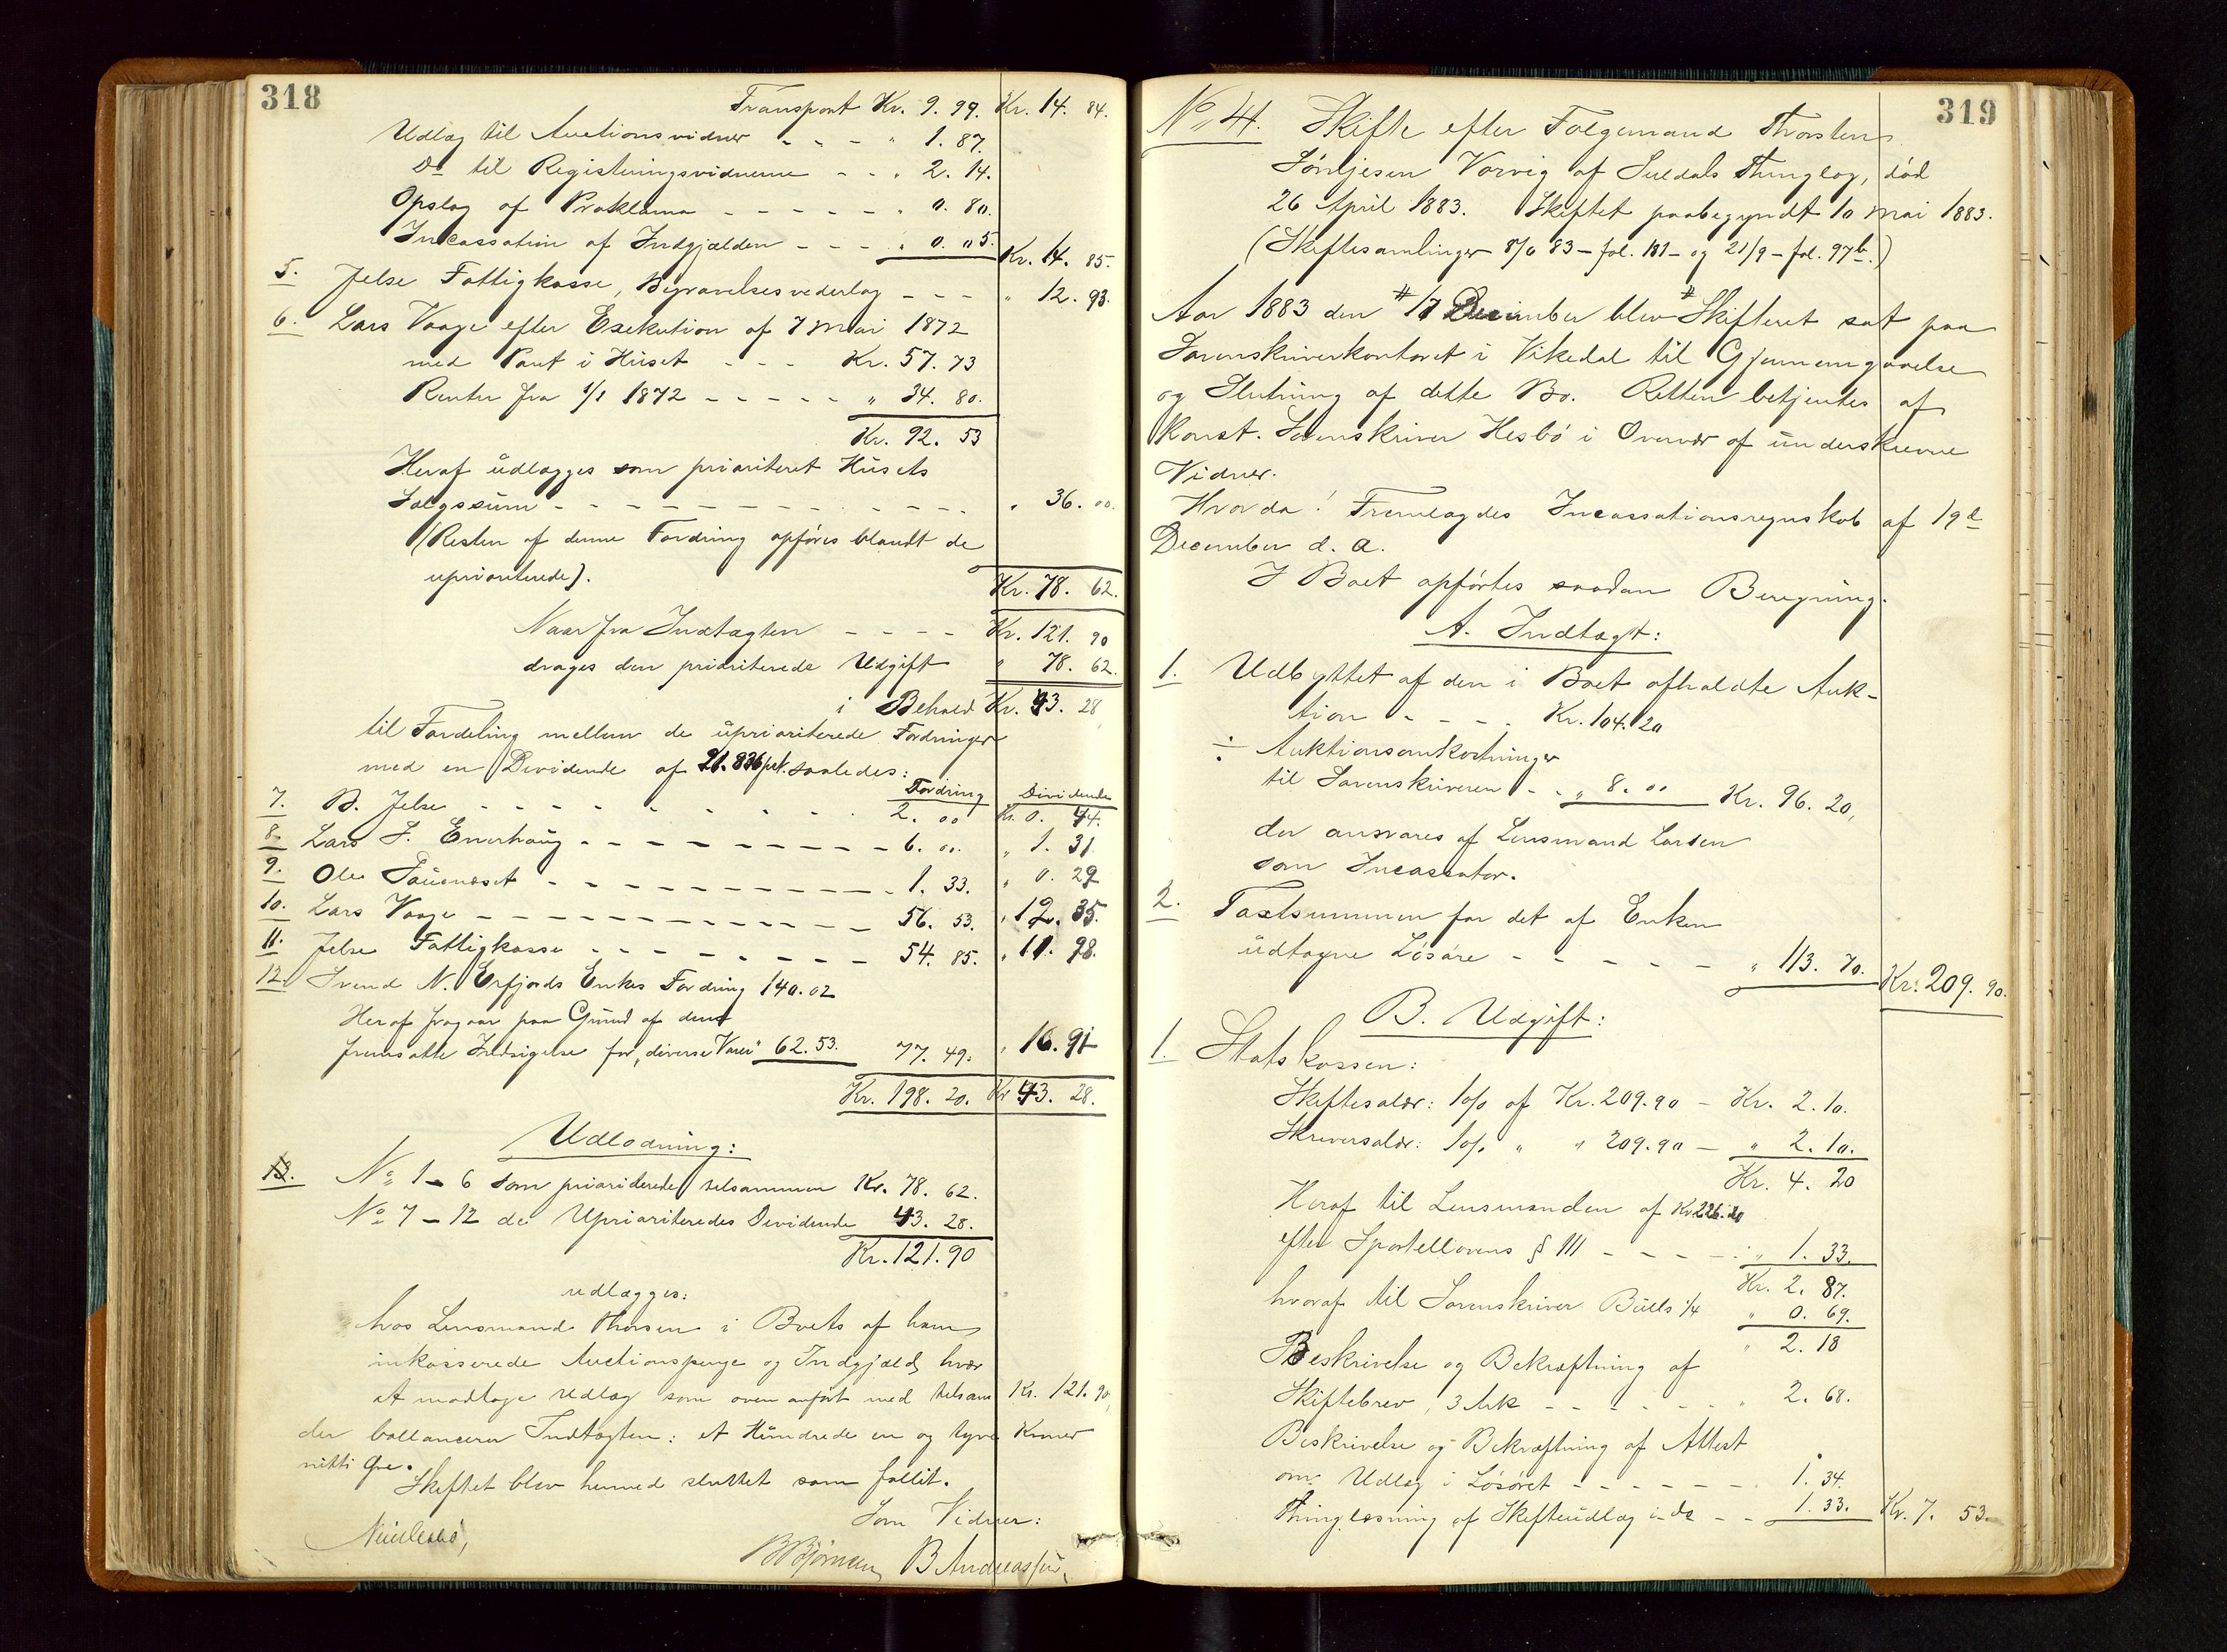 318
Transport Kr. 9. 99. Kr. 14. 84.
Udlæg til Auctionsvidner - - - " 1. 87.
Do til Registeringsvidnerne - - " 2. 14.
Opslag af Proklama - - - - - - " 0. 80.
Incassation af Indgjælden - - - " 0. 05. Kr. 14. 85.
5. Jelse Fattigkasse, Begravelsesvederlag - - - " 12. 93.
6. Lars Vaage efter Exekution af 7 Mai 1872
med Pant i Huset - - - Kr. 57. 73
Renter fra 1/1 1872 - - - - - " 34. 80.
Kr. 92. 53
Heraf udlægges som prioriteret Husets
Salgssum - - - - - - - - - - - " 36. 00.
(Resten af denne Fordring opføres blandt de
uprioriterede).
Kr. 78. 62.
Naar fra Indtægten - - - - Kr. 121. 90
drages den prioriterede Udgift " 78. 62.
i Behold Kr. 43. 28
til Fordeling mellem de uprioriterede Fordringer
med en Dividende af 21.836 pct. saaledes:
Fordring Dividende
7. B. Jelse - - - - - - - - 2. 00 Kr. 0. 44.
8. Lars J. Enerhaug - - - - - - - - - 6. 00. " 1. 31
9. Ole - - - - - - - - - - 1. 33. " 0. 29
10. Lars Vaage - - - - - - - - - - 56. 53. " 12. 35.
11. Jelse Fattigkasse - - - - - - - - 54. 85. " 11. 98.
12. Svend N. Erfjords Enkes Fordring 140.02
Heraf fragaar paa Grund af den
fremsatte Indsigelse for "diverse Varer" 62.53. 77. 49. " 16. 91
Kr. 198. 20. Kr 43. 28.
Udlodning:
13. No 1 - 6 som prioriterede tilsammen Kr. 78. 62.
No 7 - 12 de Uprioriteredes Dividende 43. 28.
Kr. 121.90
udlægges:
hos Lensmand Thorsen i Boets af ham
inkasserede Auctionspenge og Indgjæld, hvor
at modtage Udlæg som oven anført med tilsam Kr. 121. 90,
der ballancerer Indtægten: et Hundrede en og tyve Kroner
nitti Øre.
Skiftet blev hermed sluttet som fallit.
Som Vidner:
BBjørnsen, B Andreassen,
319
No 41. Skifte efter Følgemand Thorsten
Sørensjesen Vorvig af Suldals Thinglag, død
26 April 1883. Skiftet paabegyndt 10 Mai 1883.
(Skiftesamlinger 8/6 83 - fol. 181 - og 21/9 - fol. 97b.)
Aar 1883 den 17 December blev Skifteret sat paa
Sorenskriverkontoret i Vikedal til Gjennemgaaelse
og Slutning af dette Bo. Retten betjentes af
Konst. Sorenskriver Hesbø i Overvær af underskrevne
Vidner.
Hvorda! Fremlagdes Incassationsregnskab af 19de
December d. a.
I Boet opførtes saadan Beregning.
A. Indtægt:
1. Udbyttet af den i Boet afholdte Auk-
tion - - - - Kr. 104.20
÷ Auktionsomkostninger
til Sorenskriveren - - " 8. 00 Kr. 96. 20,
der ansvares af Lensmand Larsen
som Incassator.
2. Taxtsummen for det af Enken
udtagne Løsøre - - - - - " 113. 70. Kr. 209. 90.
B. Udgift:
1. Statskassen:
Skiftesalær: 1 o/o af Kr. 209.90 - Kr. 2. 10.
Skriversalær: 1 o/o " " 209.90 - " 2. 10.
Kr. 4. 20
Heraf til Lensmanden af Kr 226.20
efter Sportellovens § 111 - - - - " 1. 33.
Kr. 2. 87.
hvoraf til Sorenskriver Bulls 1/4 " 0. 69.
" 2. 18
Beskrivelse og Bekræftning af
Skiftebrev, 3 Ark - - - - - - " 2. 68.
Beskrivelse og Bekræftning af Attest
om Udlæg i Løsøret - - - - - - 1. 34.
Thinglæsning af Skifteudlæg i do - - 1. 33. Kr. 7. 53.